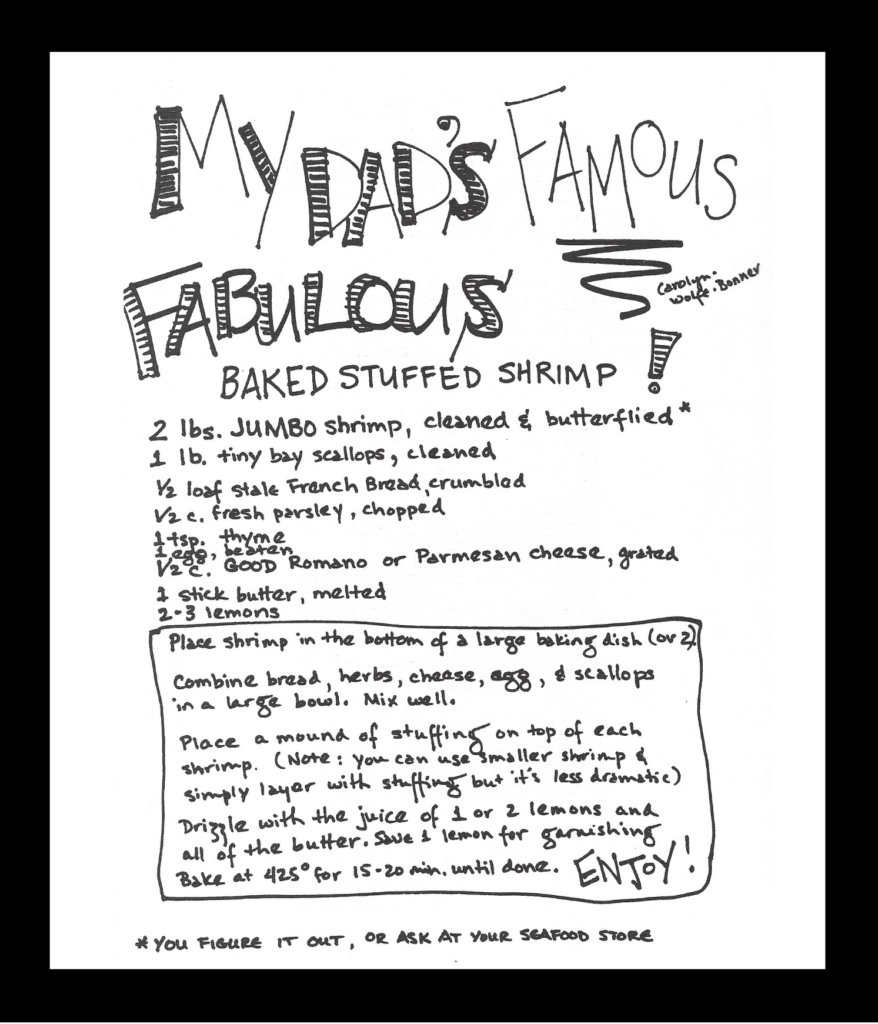 MY DAD'S FAMOUS
FABULOUS
Carolyn.
Wolfe.Bonner
BAKED STUFFED SHRIMP !
2 lbs. JUMBO shrimp, cleaned & butterflied*
1 lb. tiny bay scallops, cleaned
1/2 loaf stale French Bread, crumbled
1/2 c. fresh parsley, chopped
1 tsp. thyme
1 egg, beaten
1/2 c. GOOD Romano or Parmesan cheese, grated
1 stick butter, melted
2-3 lemons
Place shrimp in the bottom of a large baking dish (or 2).
Combine bread, herbs, cheese, egg, & scallops
in a large bowl. Mix well.
Place a mound of stuffing on top of each
shrimp. (Note: you can use smaller shrimp &
simply layer with stuffing but it's less dramatic)
Drizzle with the juice of 1 or 2 lemons and
all of the butter. Save 1 lemon for garnishing
Bake at 425° for 15-20 min. until done. ENJOY!
*YOU FIGURE IT OUT, OR ASK AT YOUR SEAFOOD STORE